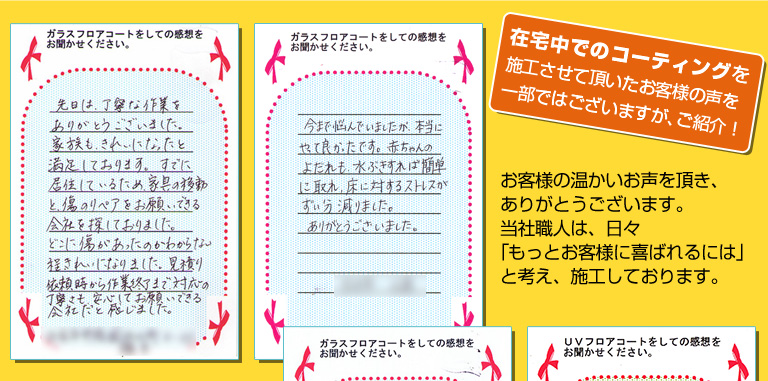 ガラスフロアコートをしての感想を
お聞かせください。
先日は、丁寧な作業を
ありがとうございました。
家族も、きれいになったと
満足しております。すでに
居住しているため、家具の移動
と、傷のリペアをお願いできる
会社を探しておりました。
どこに傷があったのかわからない
程きれいになりました。見積り
依頼時から作業終了まで対応の
丁寧さも、安心してお願いできる
会社だと感じました。
ガラスフロアコートをしての感想を
お聞かせください。
今まで悩んでいましたが、本当に
やて良かったです。赤ちゃんの
よだれも、水ぶきすれば簡単
に取れ、床に対するストレスが
ずい分減りました。
ありがとうございました。
在宅中でのコーティングを
施工させて頂いたお客様の声を
一部ではございますが、ご紹介！
お客様の温かいお声を頂き、
ありがとうございます。
当社職人は、日々
「もっとお客様に喜ばれるには」
と考え、施工しております。
ガラスフロアコートをしての感想を
お聞かせください。
UVフロアコートをしての感想を
お聞かせください。